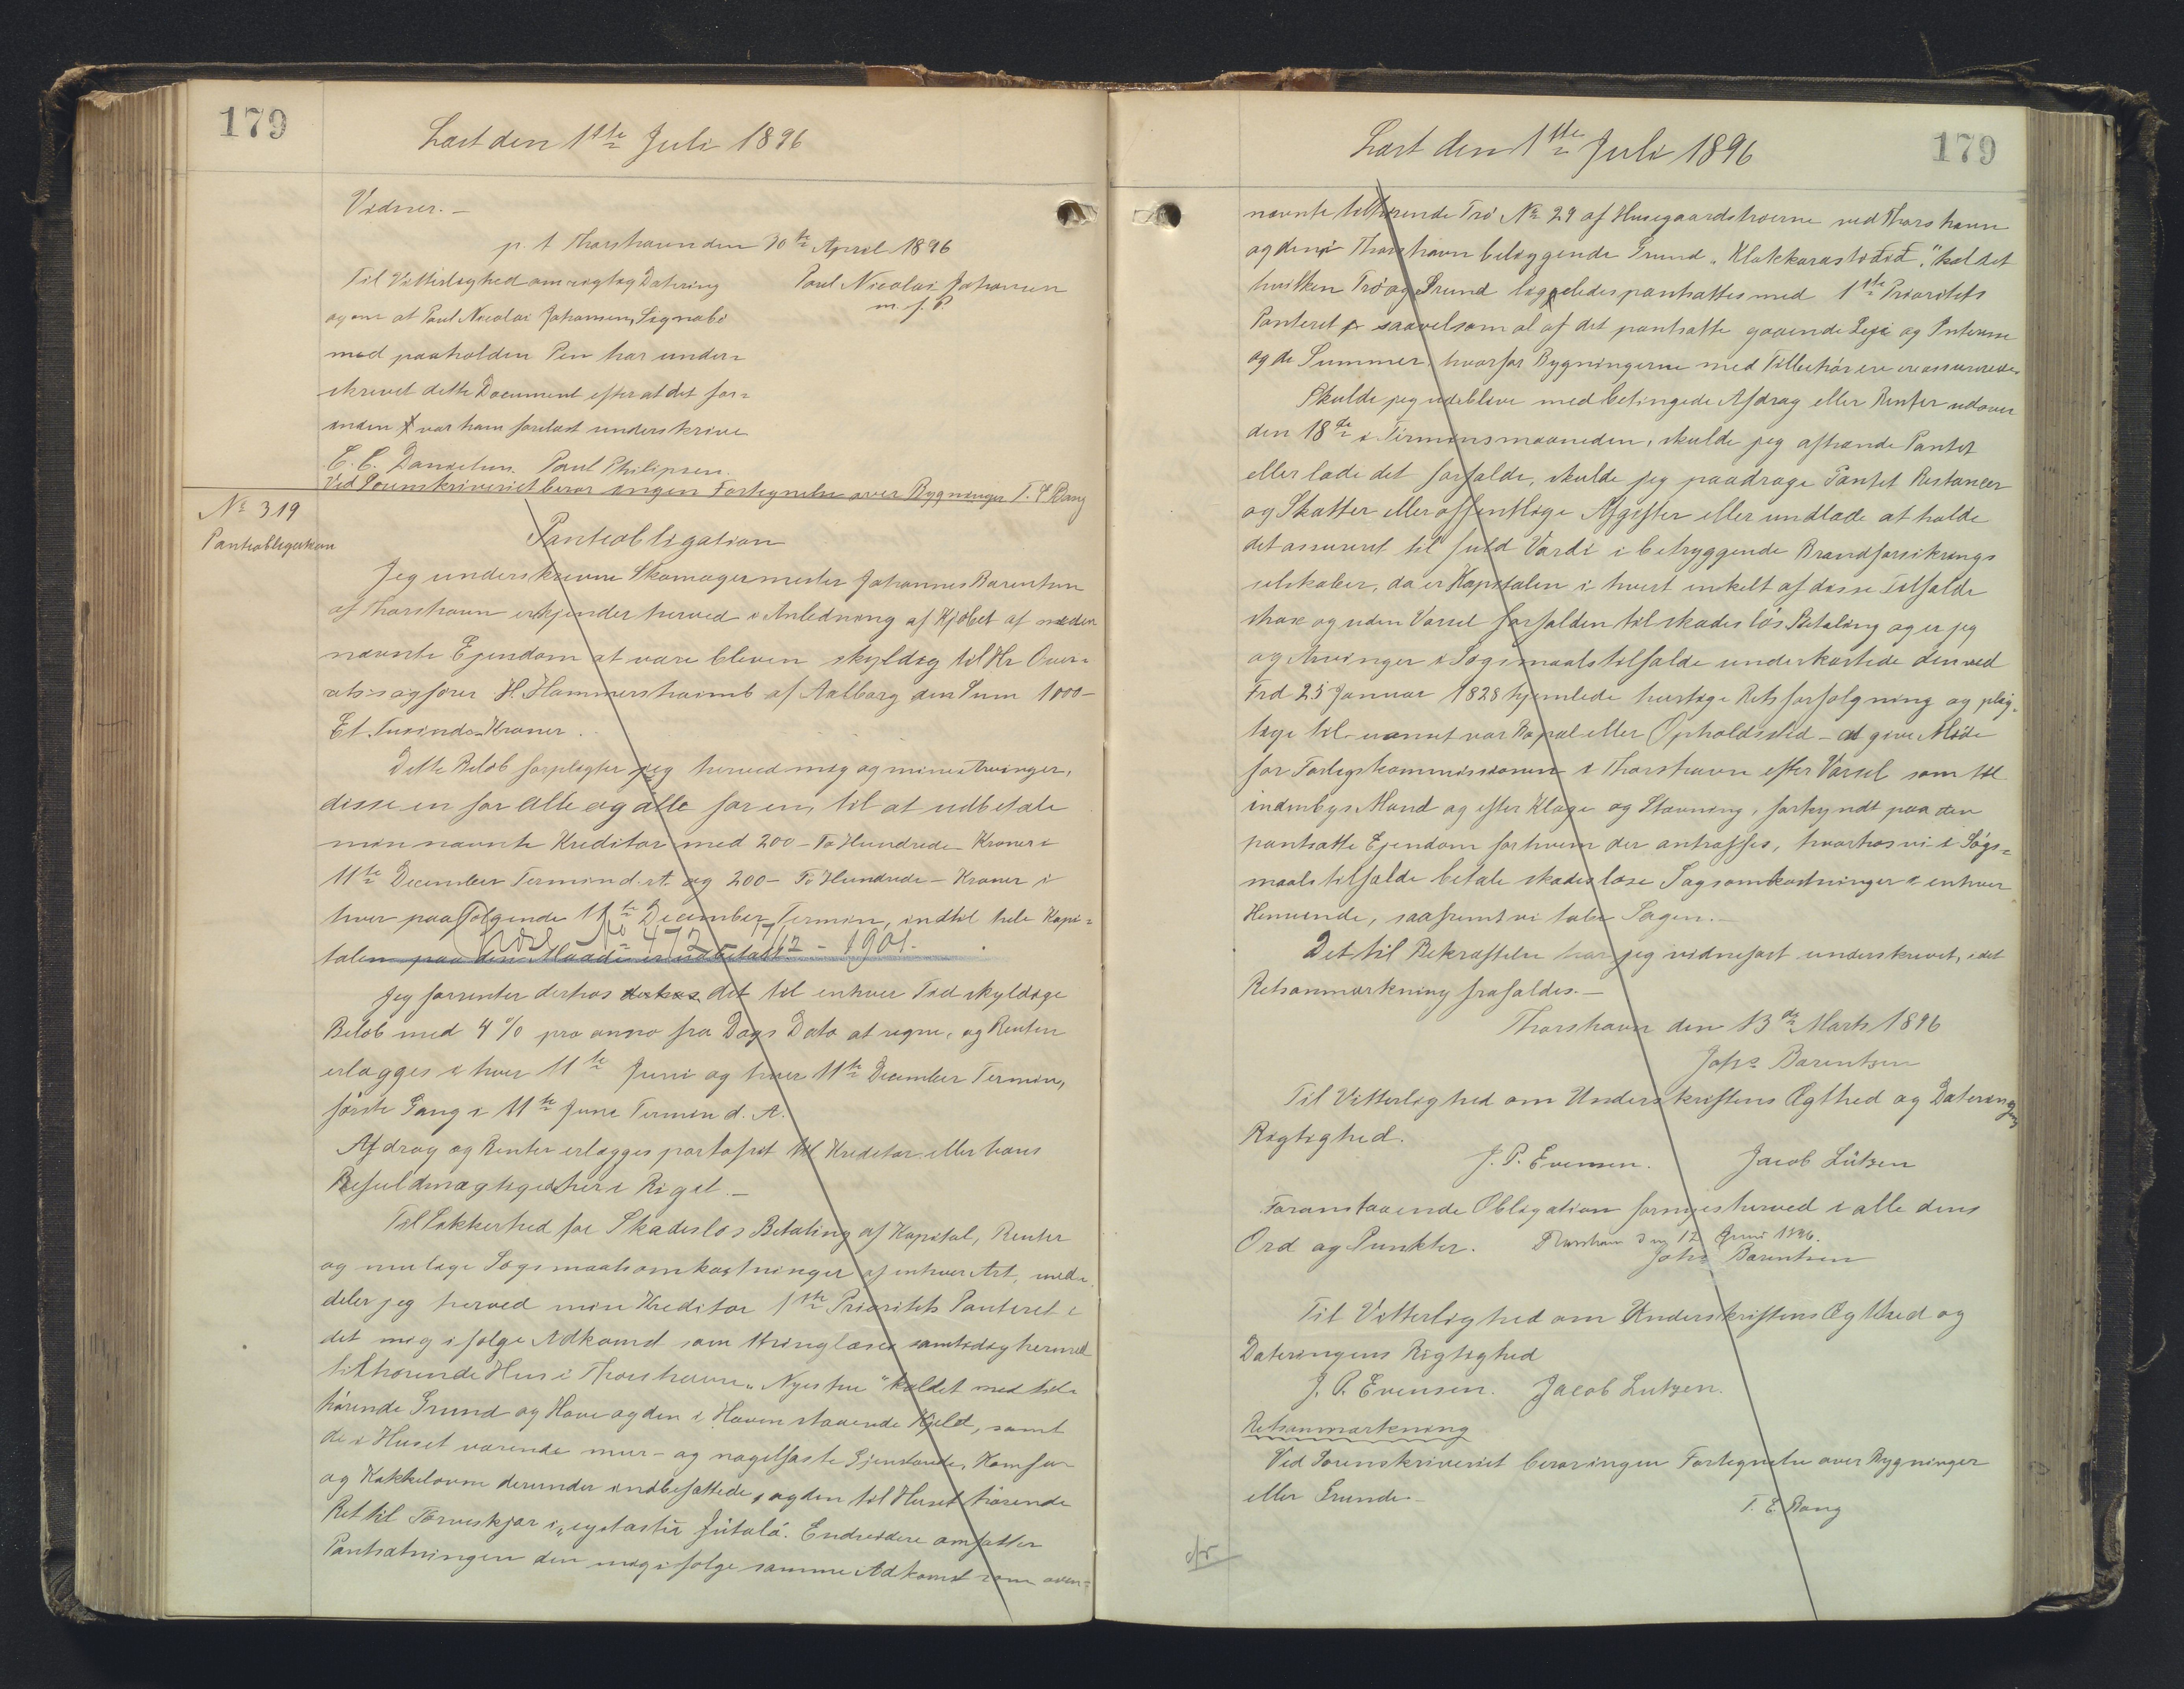 179
Læst den 1ste Juli 1896
Vidner. –
p. t. Thorshavn den 30te April 1896
Til Vitterlighed om rigtig Datering
Poul Nicolai Johansen
m. f. P.
og om at Poul Nicolai Johansen, Signabö
med paaholden Pen har under=
skrevet dette Document efter at det for=
inden var ham forelæst underskrive
E. C. Danielsen. Poul Philipsen.
Ved Sorenskriveriet beror ingen Fortegnelse over Bygninger T. E. Bang
No 319
Panteobligation
Panteobligation
Jeg underskrevne Skomagermester Johannes Barentsen
af Thorshavn erkjender herved i Anledning af Kjöbet af neden
nævnte Ejendom at være bleven skyldig til Hr Over=
retssagförer H. Hammershaimb af Aalborg den Sum 1000–
Et Tusinde Kroner.
Dette Belöb forpligter jeg herved mig og mine Arvinger,
disse en for alle og alle for en, til at udbetale
min nævnte Kreditor med 200 – To Hundrede – Kroner i
11te December Termin d. A. og 200 – To Hundrede – Kroner i
hver paafölgende 11te December Termin, indtil hele Kapi=
No 472 17/12 – 1901.
talen paa den Maade er udbetalt.
Jeg forrenter derhos derhos det til enhver Tid skyldige
Belöb med 4 % pro anno fra Dags Dato at regne, og Renten
erlægges i hver 11te Juni og hver 11te December Termin,
förste Gang i 11te Juni Termin d. A.
Afdrag og Renter erlægges portofrit til Kreditor eller hans
Befuldmægtigede her i Riget. –
Til Sikkerhed for Skadeslös Betaling af Kapital, Renter
og mulige Sögsmaalsomkostninger af enhver Art, med=
deler jeg herved min Kreditor 1ste Prioritets Panteret i
det mig ifölge Adkomst som thinglæses samtidig hermed
tilhörende Hus i Thorshavn „Nyestue“ kaldet med til=
hörende Grund og Have og den i Haven staaende Hjeld, samt
de i Huset værende mur- og nagelfaste Gjenstande, Komfur
og Kakkelovne derunder indbefattede, og den til Huset hörende
Ret til Törveskjær i „eystastu Jútalá. Endvidere omfatter
Pantsætningen den mig ifölge samme Adkomst som oven=
179
Læst den 1ste Juli 1896
nævnte tilhörende Trö No 29 af Husegaardströerne ved Thorshavn
og den i Thorshavn beliggende Grund „Klokkarastödid“, kaldet
hvilken Trö og Grund ligeledes pantsættes med 1ste Prioritets
Panteret saavelsom al af det pantsatte gaaende Leje og Interesse
og de Summer, hvorfor Bygningerne med Tilbehör ere ere assurerede.
Skulde jeg udeblive med betingede Afdrag eller Renter udover
den 18de i Terminsmaaneden, skulde jeg afhænde Pantet
eller lade det forfalde, skulde jeg paadrage Pantet Restancer
og Skatter eller offentlige Afgifter eller undlade at holde
det assureret til fuld Værdi i betryggende Brandforsikrings
selskaber, da er Kapitalen i hvert enkelt af disse Tilfælde
strax og uden Varsel forfalden til skadeslös Betaling og er jeg
og Arvinger i Sögsmaalstilfælde underkastede den ved
Frd 25 Januar 1828 hjemlede hurtige Retsforfölgning og plig=
tige til – uanset vor Bopæl eller Opholdssted – at give Möde
for Forligskommissionen i Thorshavn efter Varsel som til
indenbys Mand og efter Klage og Stævning, forkyndt paa den
pantsatte Ejendom for hvem der antræffes, hvorhos vi i Sögs=
maalstilfælde betale skadeslöse Sagsomkostninger i enhver
Henseende, saafremt vi tabe Sagen. –
Det til Bekræftelse har jeg vidnefast underskrevet, idet
Retsanmærkning frafaldes. –
Thorshavn den 13de Marts 1896
Johs Barentsen
Til Vitterlighed om Underskriftens Ægthed og Dateringens
Rigtighed.
J. P. Evensen. Jacob Lützen
Foranstaaende Obligation fornyes herved i alle dens
Ord og Punkter. Thorshavn den 12 Juni 1896.
Johs Barentsen
Til Vitterlighed om Underskriftens Ægthed og
Dateringens Rigtighed
J. P. Evensen. Jacob Lutzen.
Retsanmærkning
Ved Sorenskriveriet beror ingen Fortegnelse over Bygninger
eller Grunde. –
T. E. Bang